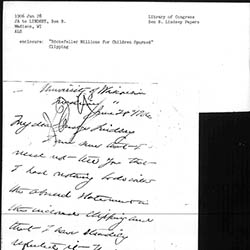 1906 Jun 28
JA to LINDSEY, Ben B.
Madison, WI
ALS
Library of Congress
Ben B. Lindsey Papers
enclosure: "Rockefeller Millions for Children Spurned"
Clipping
University of Wisconsin
June 28 1906
My dear Judge Lindsey
I am sure that I
need not tell you that
I have nothing to do with
the absurd statement in
the enclosed clipping and
that I have
it